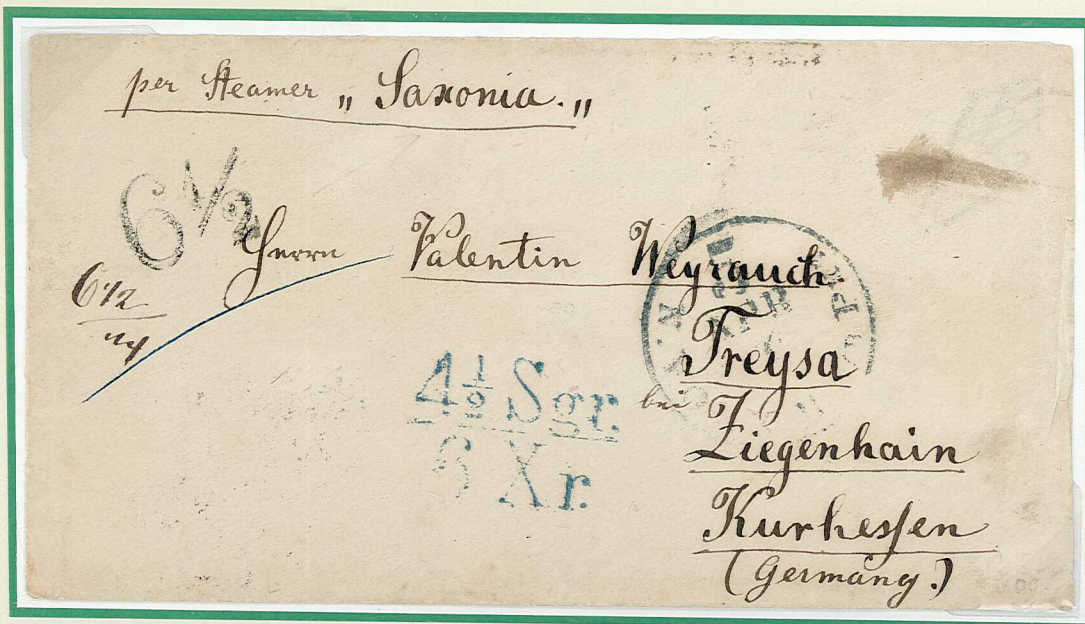 per Steamer „ Saxonia. „
6 1/2
Herrn Valentin Weyrauch
6 1/2
Treysa
4 1/2 Sgr.
bei
Ziegenhain
Xr.
Kurhessen
(Germany.)
APR